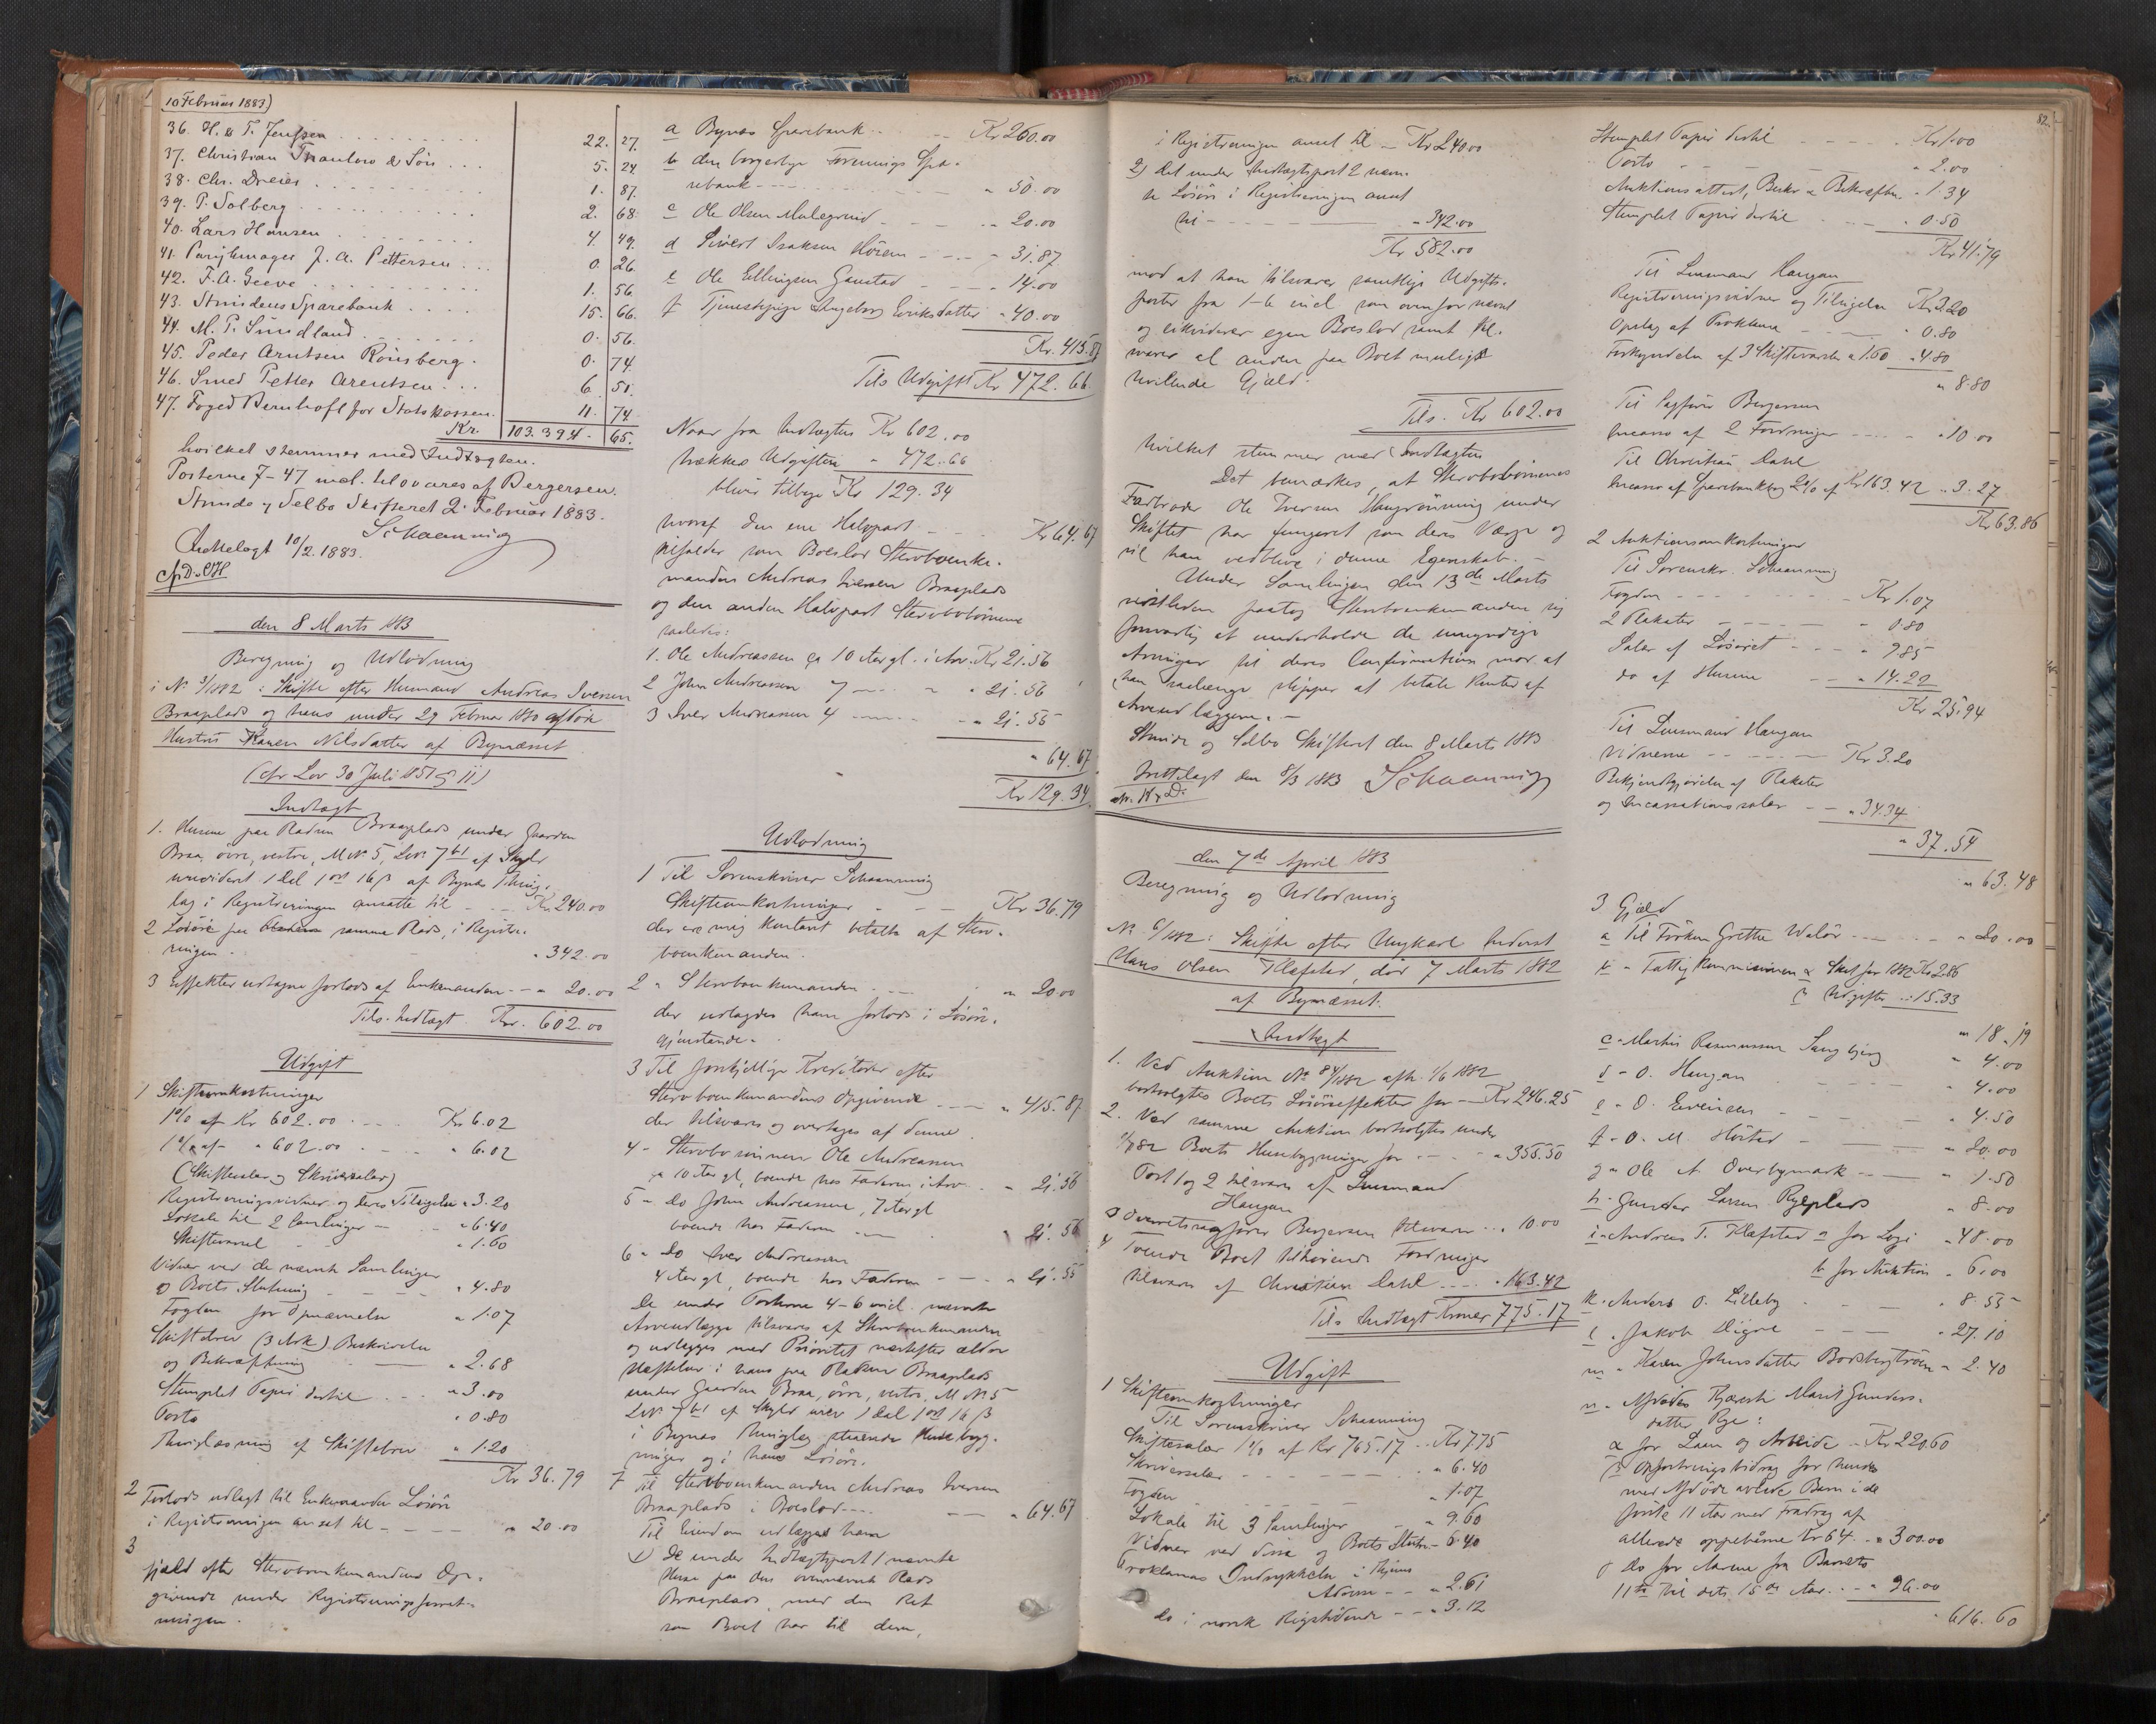 10 Februar 1883)
36. H. & T. Jenssen . . . 22. 27.
37. Christian Thaulow & Søn . . . 5. 24.
38. Chr. Dreier . . . 1. 87.
39. P. Solberg . . . 2. 68.
40. Lars Hansen . . . 4. 49.
41. Parykmager J. A. Pettersen . . . 0. 26.
42. F. A. Geeve . . . 1. 56.
43. Strindens Sparebank . . . 15. 66.
44. M. P. Sundland . . . 0. 56.
45. Peder Arntsen Rönsberg . 0. 74.
46. Smed Petter Arentsen . . . 6. 50.
47. Foged Bernhoft for Statskassen. 11. 74.
Kr. 103.394. 65.
hvilket stemmer med Indtægten.
Posterne 7-47 incl. tilsvares af Bergersen.
Strinde og Selbo Skifteret 2. Februar 1883.
Schaanning
Indtelagt 10/2. 1883.
den 8 Marts 1883
Beregning og Udlodning
i No 3/1882 : Skifte efter Huusmand Andreas Iversen
Braaplads og hans under 29 Februar 1880 afdøde
Hustru Karen Nilsdatter af Bynæsset
(cfr Lov 30 Juli 1851 § 11)
Indtægt
1. Husene paa Pladsen Braaplads under Gaarden
Braa, övre, vestre, M No 5, Lno 7 b1 af Skyld
urevideret 1 Dal 1 ort 16 β af Bynæs Thing-
lag i Registreringen ansatte til - - Kr 240.00
2 Løsøre paa samme Plads, i Registre-
ringen - - " 342.00
3 Effekter udtagne forlods af Enkemanden - - " 20.00
Tils. Indtægt Kr. 602.00
Udgift
1 Skifteomkostninger
1% af Kr 602.00 . . . Kr 6.02
1% af " 602.00 . . . " 6.02
(Skiftesalær og Skriversalær)
Registreringsvidner og deres Tilsigelse " 3.20
Lokale til 2 Samlinger - - " 6.40
Skiftevarsel - - " 1.60
Vidner ved de nævnte Samlinger
og Boets Slutning - - " 4.80
Fogden for Opnævnelse " 1.07
Skiftebrev (3 Ark) Beskrivelse
og Bekræftning - " 2.68
Stemplet Papir dertil - - " 3.00
Porto " 0.80
Thinglæsning af Skiftebrev " 1.20
Kr 36.79
2 Forlods udlagt til Enkemanden Løsøre
i Registreringen ansat til - - - - " 20.00
3
Gjæld efter Stervboenkemandens Op-
givende under Registreringsforret-
ningen.
a Bynæs Sparebank . . - - Kr 260.00
b den borgerlige Forenings Spa-
rebank - - - " 50.00
c Ole Olsen Mulegrind - - - " 20.00
d Sivert Isaksen Hörem - - - " 31.87
e Ole Ellingsen Gaustad - - - " 14.00
f Tjenestepige Ingeborg Eriksdatter " 40.00
Kr. 415.87
Tils Udgift Kr 472.66
Naar fra Indtægten Kr 602.00
trækkes Udgiften " 472.66
bliver tilbage Kr 129.34
hvoraf den ene Halvpart - - Kr 64.67
tilfalder som Boeslod Stervboenke-
manden Andreas Iversen Braaplads
og den anden Halvpart Stervbobörnene
saaledes:
1. Ole Andreassen ca 10 Aar gl. i Arv. Kr 21.56
2 John Andreassen 7 - - " " 21.56
3 Iver Andreassen 4 - - - " 21.55
" 64.67
Kr 129.34
Udlodning
1 Til Sorenskriver Schaanning
Skifteomkostninger - - - Kr 36.79
der ere mig kontant betalte af Sterv-
boenkemanden.
2 " Stervboenkemanden - - - " 20.00
der udlagdes ham forlods i Løsøre-
gjenstande.
3 Til forskjellige Kreditorer efter
Stervboenkemandens Opgivende - - " 415.87
der tilsvares og overtages af denne.
4 - Stervbosønnen Ole Andreassen
ca 10 Aar gl, boende hos Faderen i Arv - " 21.56
5 - Do John Andreassen, 7 Aar gl
boende hos Faderen - - " 21.56
6 " Do Iver Andreassen
4 Aar gl, boende hos Faderen - - - " 21.55
De under Posterne 4-6 incl. nævnte
Arveudlægge tilsvares af Stervboenkemanden
og udlægges med Prioritet næstefter ældre
Heftelser i hans paa Pladsen Braaplads
under Gaarden Braa, övre, vestre, M No 5
Lno 7 b1 af Skyld urev 1 Dal 1 ort 16 β
i Bynæs Thinglag staaende Husebyg-
ninger og i hans Løsøre.
7 Til Stervboenkemanden Andreas Iversen
Braaplads i Boeslod - - - - " 64.67
Til Eiendom udlægges ham
1) De under Indtægtspost 1 nævnte
Huse paa den ovennævnte Plads
Braaplads, med den Ret
som Boet har til dem,
82.
i Registreringen ansat til - Kr 240.00
2) det under Indtægtspost 2 nævn-
te Løsøre i Registreringen ansat
til - - - " 342.00
Kr 582.00
mod at han tilsvarer samtlige Udgifts-
poster fra 1-6 incl. som ovenfor nævnt
og likviderer egen Boeslod samt til-
svarer al anden paa Boet muligt
hvilende Gjæld.
Tils. Kr 602.00
hvilket stemmer med Indtægten
Det bemærkes, at Stervbobörnenes
Farbroder Ole Iversen Haugrönning under
Skiftet har fungeret som deres Værge og
vil han vedblive i denne Egenskab. -
Under Samlingen den 13de Marts
sidstleden paatog Stervboenkemanden sig
forsvarlig at underholde de umyndige
Arvinger til deres Confirmation mod at
han saalænge slipper at betale Renter af
Arveudlæggene. -
Strinde og Selbo Skifteret den 8 Marts 1883
Indtelagt den 8/3 1883 Schaanning
den 7de April 1883
Beregning og Udlodning
No 6/1882: Skifte efter Ungkarl Inderst
Hans Olsen Klefstad, död 7 Marts 1882
af Bynæsset.
Indtægt
1. Ved Auktion No 84/1882 afh. 1/6 1882
bortsolgtes Boets Løsöreeffekter for - Kr 246.25
2. Ved samme Auktion bortsolgtes under
Boets Husebygninger for - - - " 355.50
Post 1 og 2 tilsvares af Lensmand
Haugan
3 Overretssagfører Bergersen tilsvarer . . " 10.00
4 Tvende Boet tilhørende Fordringer
tilsvares af Christian Dahl - - - " 163.42
Tils Indtægt Kroner 775.17
Udgift
1 Skifteomkostninger
Til Sorenskriver Schaanning
Skiftesalær 1% af Kr 765.17 . . Kr 7.75
Skriversalær - - - " 6.40
Fogden - - - " 1.07
Lokale til 3 Samlinger - " 9.60
Vidner ved disse og Boets Slutn. - 6.40
Proklamas Indrykkelse i Thjems
Adresse - - " 2.61
do i norsk Rigstidende - - " 3.12
Stemplet Papir dertil - - - - Kr 1.00
Porto - - - " 2.00
Auktionsattest, Beskr & Bekræftn. " 1.34
Stemplet Papir dertil - - " 0.50
Kr 41.79
Til Lensmand Haugan
Registreringsvidner og Tilsigelse Kr 3.20
Opslag af Proklama - - - " 0.80
Forkyndelse af 3 Skiftevarsler a 1.60 " 4.80
" 8.80
Til Sagfører Bergersen
Incasso af 2 Fordringer - - - " 10.00
Til Christian Dahl
Incasso af Sparebankbog 2% af Kr 163.42 " 3.27
Kr 63.86
2 Auktionsomkostninger
Til Sorenskr. Schaanning
Fogden - - - Kr 1.07
2 Plakater - - - " 0.80
Salær af Løsøret - - - " 9.85
do af Husene - - " 14.22
Kr 25.94
Til Lensmand Haugan
Vidnerne - - - Kr 3.20
Bekjendtgjørelse af Plakater
og Incassationssalær - - " 34.34
" 37.54
" 63.48
3 Gjæld
a Til Fröken Grethe Walör - - - " 20.00
b " Fattigkommissionen α Skat for 1882 Kr 2.86
β Udgifter " 15.33
" 18.19
c - Martin Rasmussen Sangbjerg " 4.00
d - O. Haugan - - " 4.00
e - O. Evensen - - - " 4.50
f - O. M. Höstad - - - " 20.00
g - Ole A. Overbymark - - - " 1.50
h - Gunder Larsen Ryeplads " 8.00
i - Andreas T. Klefstad a for Logi " 48.00
b for Auktion " 6.00
k - Anders O. Lilleby - - - " 8.55
l - Jakob Digre - - - " 27.10
m - Karen Johnsdatter " 2.40
n - Afdødes Kjæreste Marit Gunders-
datter Rye:
α for Laan og Arbeide - Kr 220.60
β Opfostringsbidrag for hendes
med Afdöde avlede Barn i de
første 11 Aar med Fradrag af
allerede oppebårne Kr 64. . " 300.00
γ do for Aarene fra Barnets
11te til dets 15de Aar . . - " 96.00
" 616.60